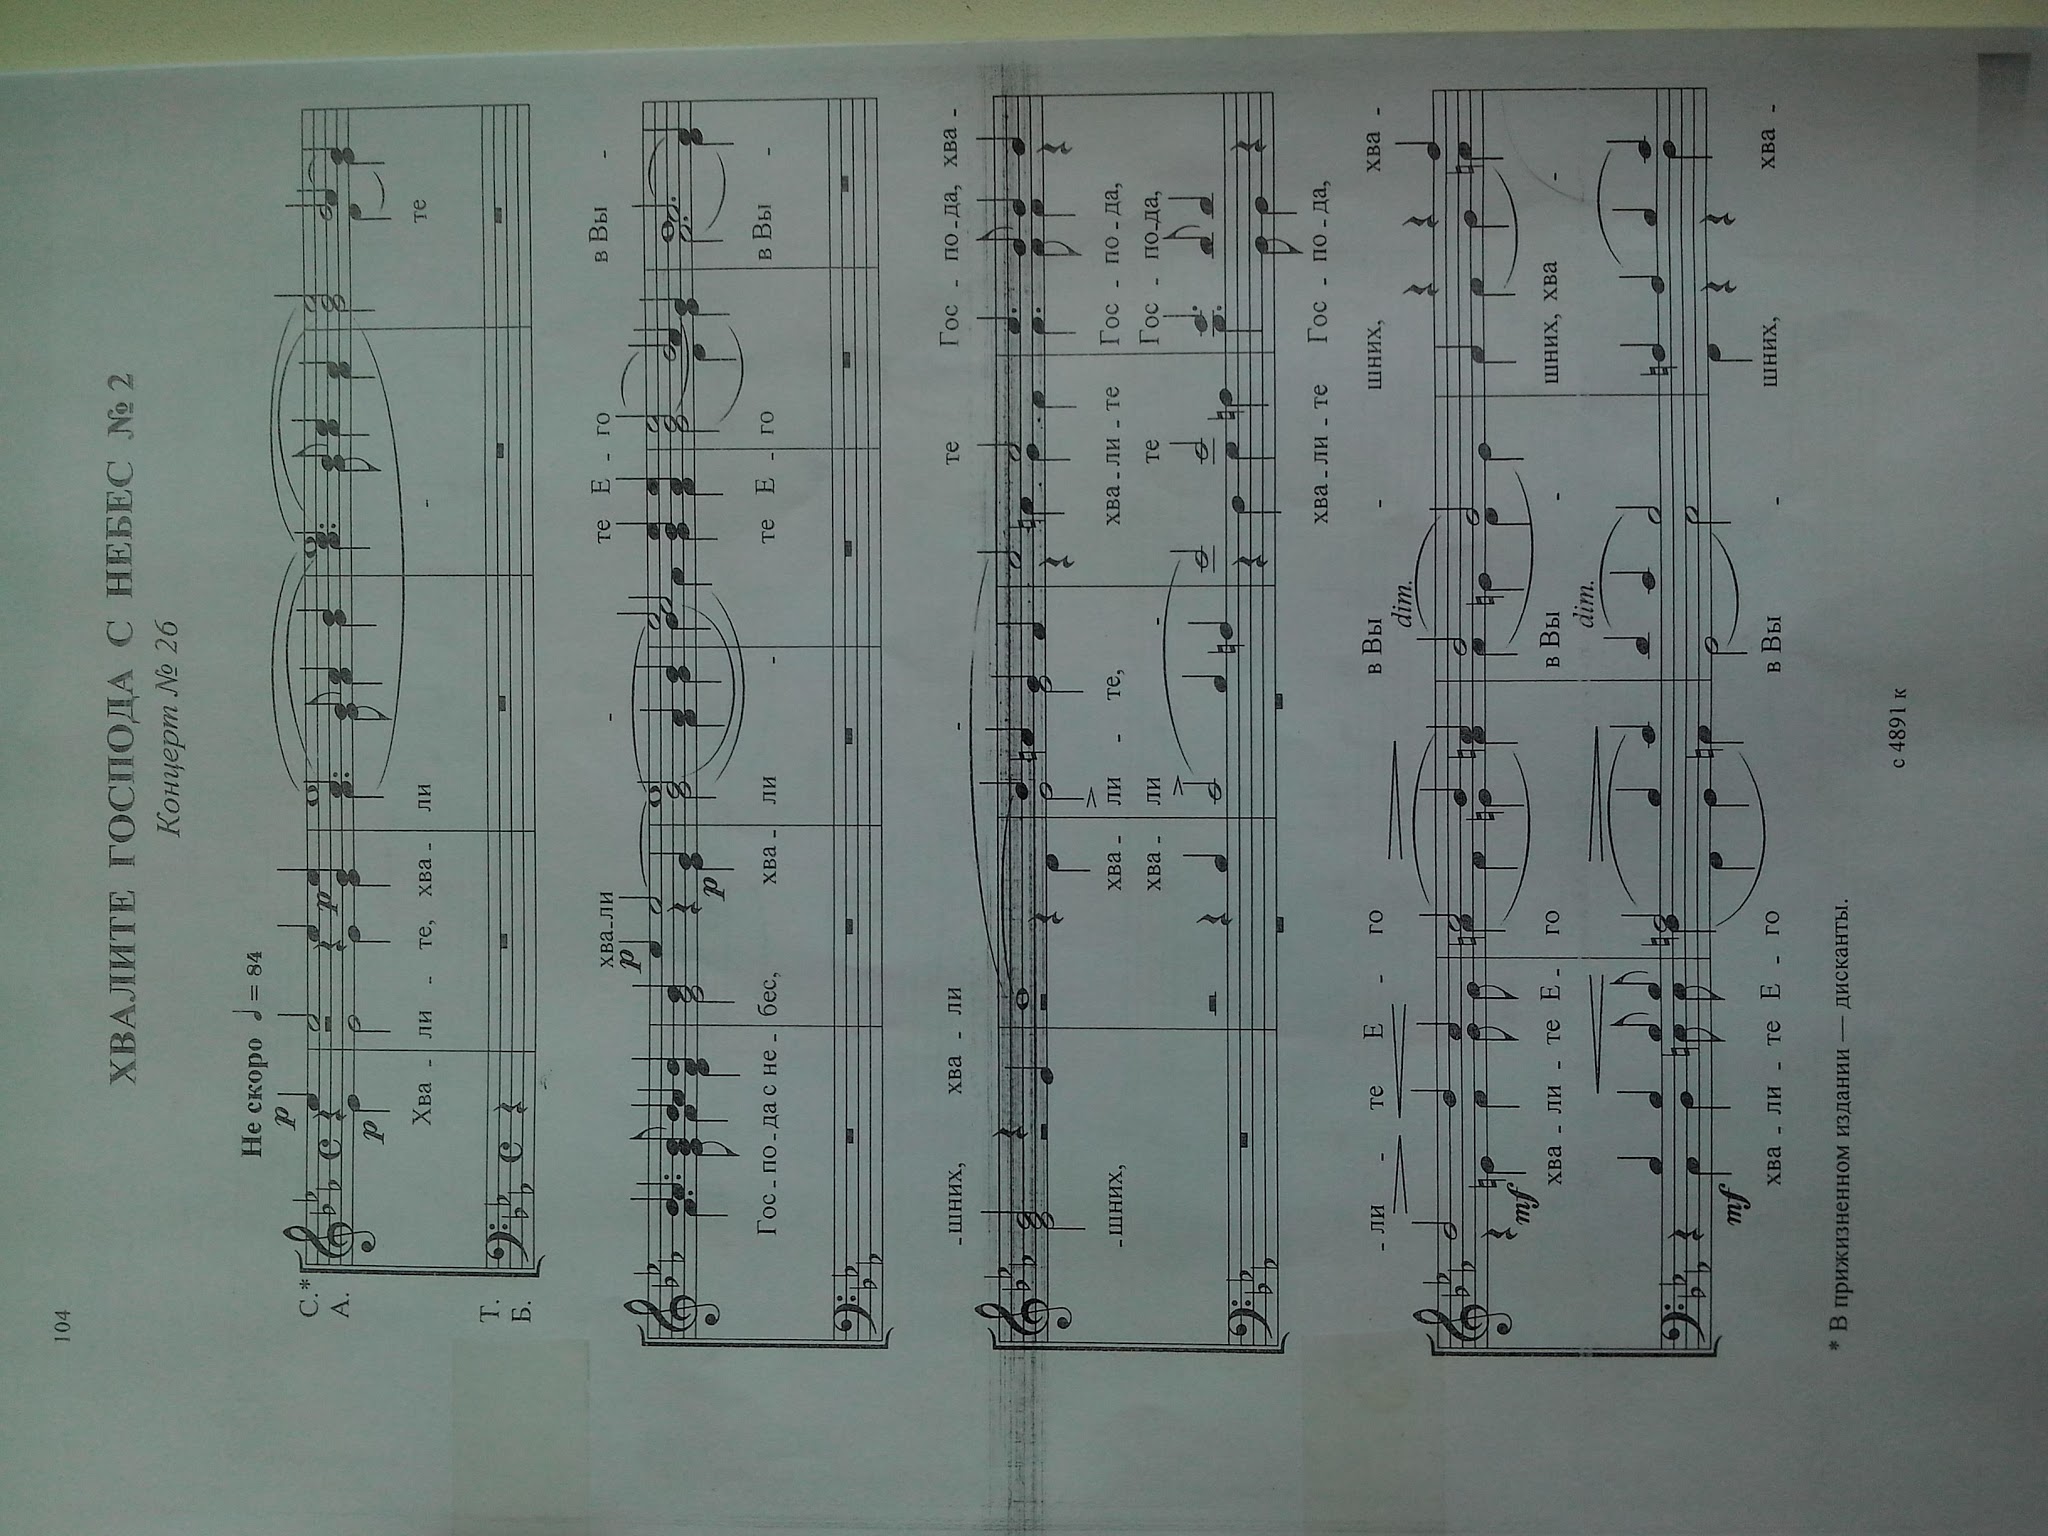 104
ХВАЛИТЕ ГОСПОДА С НЕБЕС № 2
Концерт № 26
Не скоро = 84
С.*
А.
p
p
p
Хва - ли - те, хва - ли - те
Т.
Б.
p
хва-ли - те Е - го в Вы -
p
Гос - по - да с не - бес, хва - ли - те Е - го в Вы -
-шних, хва - ли - те Гос - по - да, хва -
-шних, хва - ли - те, хва - ли - те Гос - по - да,
хва - ли те Гос - по-да,
хва - ли - те Гос - по - да,
- ли - те Е - го в Вы - шних, хва -
dim.
mf
хва - ли - те Е - го в Вы - шних, хва -
dim.
mf
хва - ли - те Е - го в Вы - шних, хва -
* В прижизненном издании — дисканты.
с 4891 к